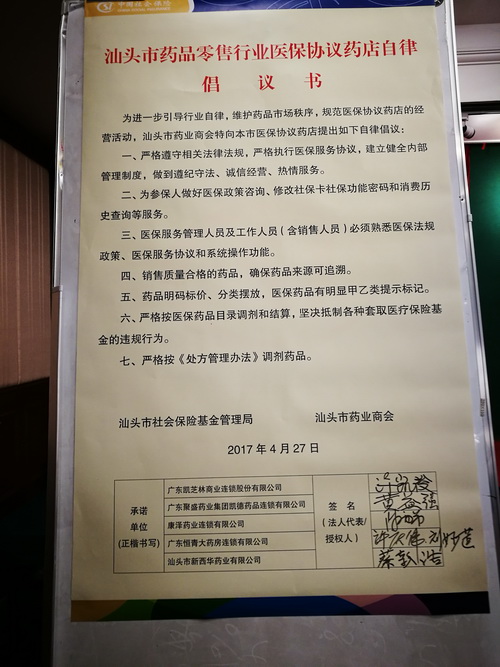 中国社会保险
汕头市药品零售行业医保协议药店自律
倡议书
为进一步引导行业自律，维护药品市场秩序，规范医保协议药店的经
营活动，汕头市药业商会特向本市医保协议药店提出如下自律倡议：
一、严格遵守相关法律法规，严格执行医保服务协议，建立健全内部
管理制度，做到遵纪守法、诚信经营、热情服务。
二、为参保人做好医保政策咨询、修改社保卡社保功能密码和消费历
史查询等服务。
三、医保服务管理人员及工作人员（含销售人员）必须熟悉医保法规
政策、医保服务协议和系统操作功能。
四、销售质量合格的药品，确保药品来源可追溯。
五、药品明码标价、分类摆放，医保药品有明显甲乙类提示标记。
六、严格按医保药品目录调剂和结算，坚决抵制各种套取医疗保险基
金的违规行为。
七、严格按《处方管理办法》调剂药品。
汕头市社会保险基金管理局 汕头市药业商会
2017 年 4 月 27 日
承诺
单位
（正楷书写）
广东凯芝林商业连锁股份有限公司
广东聚盛药业集团凯德药品连锁有限公司
康泽药业连锁有限公司
广东恒青大药房连锁有限公司
汕头市新西华药业有限公司
签 名
（法人代表/
授权人）
蔡彭浩